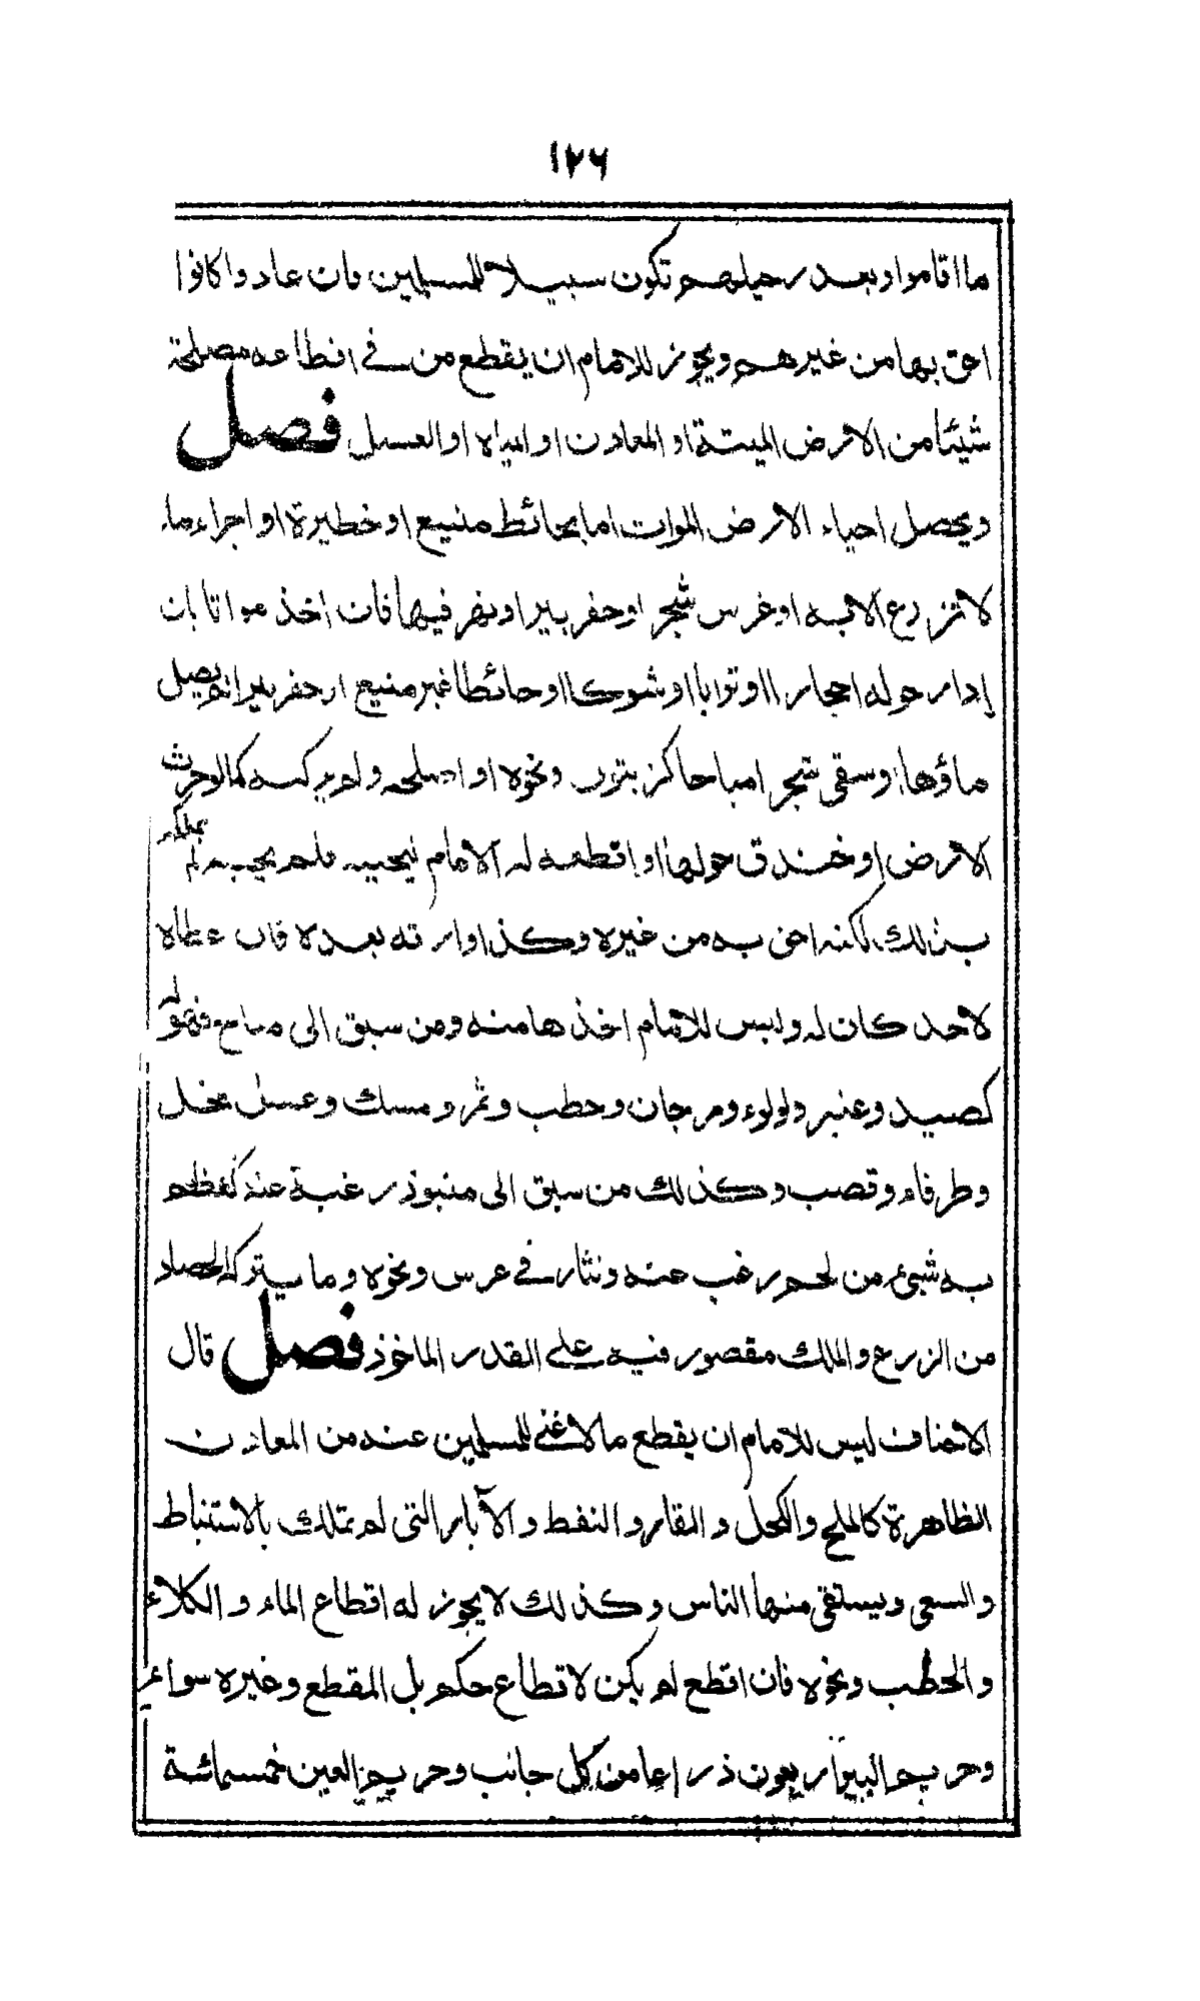 ١٢٦
ما اقاموا وبعد رحيلهم تكون سبيلا للمسلمين فان عادوا كانوا
احق بها من غيرهم ويجوز للامام ان يقطع من في اقطاعه مصلحة
شيئا من الارض الميتة او المعادن او المياه او العسل فصل
ويحصل احياء الارض الموات اما بحائط منيع او خطيرة او اجراء ماء
لا تزرع الا به او غرس شجر او حفر بير او نهر فيها فان اخذ مواتا بان
ادار حوله احجارا او ترابا او شوكا او حائطا غير منيع او حفر بيرا لم يصل
ماؤها او سقى شجرا مباحا كزيتون ونحوه او اصلحه ولم يركبه كما لو حرث
الارض او خندق حولها او اقطعه له الامام ليحييه فلم يحييه لم يملكه
بذالك لكنه احق به من غيره وكذا وارثه بعده فان عطاه
لاحد كان له وليس للامام اخذها منه ومن سبق الى مباح فهو له
كصيد وعنبر ولولوء ومرجان وحطب وثمر ومسك وعسل نحل
وطرفاء وقصب وكذلك من سبق الى منبوذ رغبة عنه كعظم
به شيء من لحم رغب عنه ونثار في عرس ونحوه وما يتركه الحصاد
من الزرع والملك مقصور فيه على القدر الماخوذ فصل قال
الاحناف ليس للامام ان يقطع ما لا غنى للمسلمين عنه من المعادن
الظاهرة كالملح والكحل والقار والنفط والآبار التى لم تملك بالاستنباط
والسعى ويستقى منها الناس وكذلك لا يجوز له اقطاع الماء والكلاء
والحطب ونحوه فان اقطع لم يكن لاقطاع حكم بل المقطع وغيره سواء
وحريم البير اربعون ذراعا من كل جانب وحريم العين خمسمائة